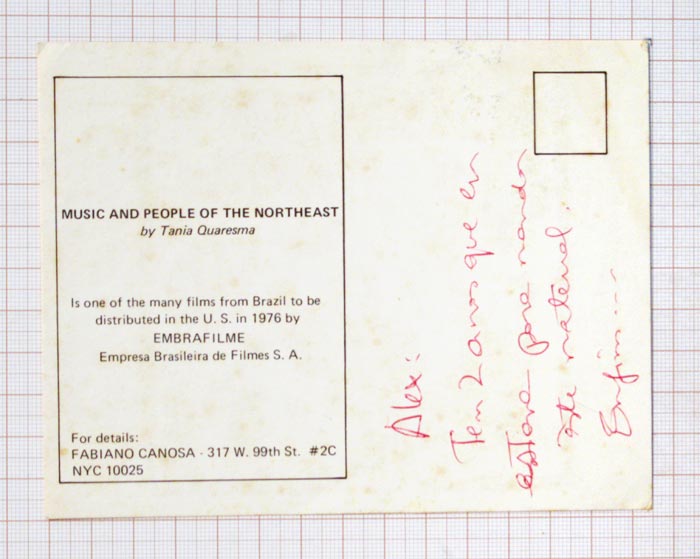 MUSIC AND PEOPLE OF THE NORTHEAST
by Tania Quaresma
Is one of the many films from Brazil to be
distributed in the U. S. in 1976 by
EMBRAFILME
Empresa Brasileira de Filmes S. A.
For details:
FABIANO CANOSA - 317 W. 99th St. #2C
NYC 10025
Alex:
Tem 2 anos que eu
estava para mandar
este material.
Enfim...